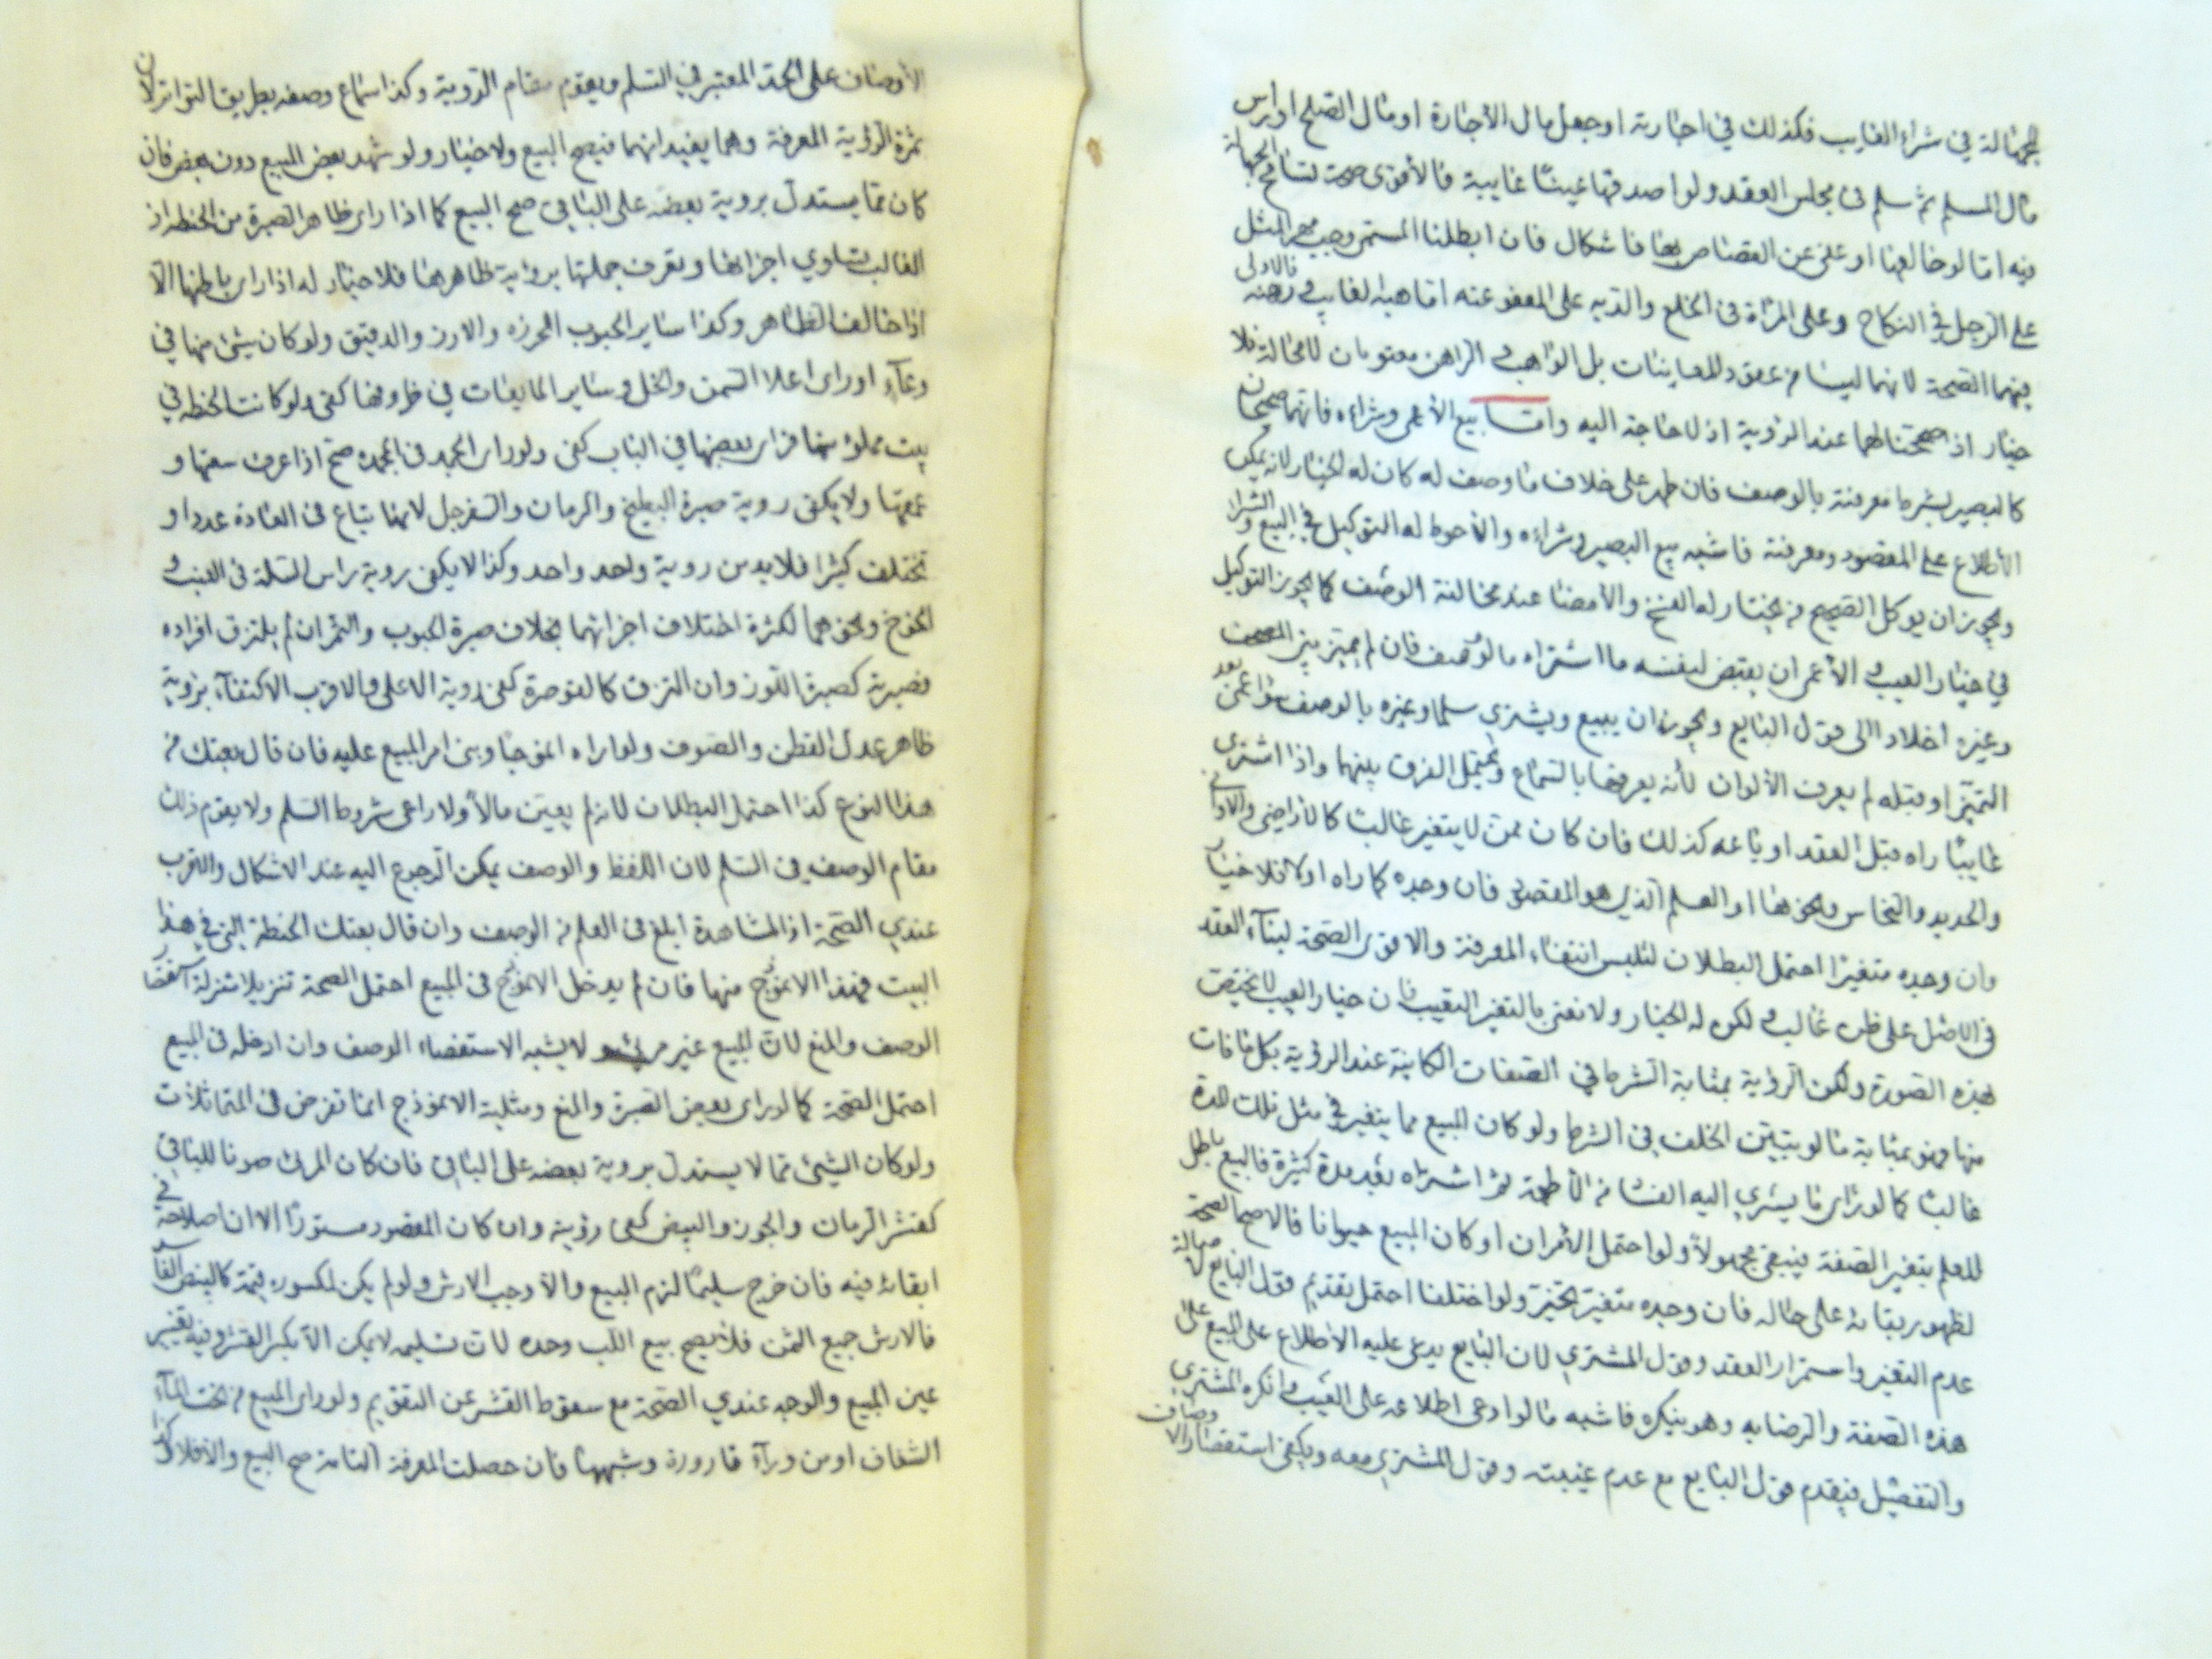 للجهالة في شراء الغايب فكذلك في اجارته او جعل مال الأجارة او مال الصلح او راس
مال المسلم ثم سلم في مجلس العقد ولو اصدقها عينا غايبة فالأقوى صحته لتسامح الجهالة
فيه اما لو خالعها او عفى عن القصاص بها فاشكال فان ابطلنا المسمى وجب مهر المثل
على الرجل في النكاح وعلى المرأة في الخلع والديه على المعفو عنه اما هبة الغايب ورهنه فالاولى
فيهما الصحة لانهما ليسا من عقود المغاينات بل الواهب و الراهن مغبونان لا محالة فلا
خيار اذ صححناهما عند الرؤية اذ لا حاجة اليه واما بيع الأعمى وشراءه فانهما صحيحان
كالبصير بشرط معرفته بالوصف فان ظهر على خلاف ما وصف له كان له الخيار لانه يمكن
الأطلاع على المقصود ومعرفته فاشبه بيع البصير وشراءه والأحوط له التوكيل في البيع والشرا
ويجوز ان يوكل الصحيح من يختار له الفسخ والأمضا عند مخالفة الوصف كما يجوز التوكيل
في خيار العيب و الأعمى ان يقبض لنفسه ما اشتراه بالوصف فان لم يميز بين المستحق
وغيره اخلاد الى قول البايع ويجوز ان يبيع ويشتري سلما وغيره بالوصف سواء عمى بعد
التميز او قبله لم يعرف الألوان لأنه يعرفها بالسماع ويحتمل الفرق بينهما واذا اشترى
غايبا راه قبل العقد او باعه كذلك فان كان مما لا يتغير غالبا كالأراضي والاواني
والحديد والنحاس ونحوها او العلم الذي هو المقصود فان وجده كما راه اولا فلا خيار
وان وجده متغيرا احتمل البطلان لتلبس انتفاء المعرفة والاقوى الصحة لبناء العقد
في الاصل على ظن غالب و لكن له الخيار ولا نعنى بالتغير التعيب فان خيار العيب لا يختص
بهذه الصورة ولكن الرؤية بمثابة الشرط في الصفات الكاينة عند الرؤية فكل ما فات
منها فهو بمثابة ما لو يتبين الخلف في الشرط ولو كان المبيع مما يتغير في مثل تلك المدة
غالبا كما لو راى ما يسرى اليه الفساد من الأطعمة ثم اشتراه بعد مدة كثيرة فالبيع باطل
للعلم بتغير الصفة فيبقى مجهولا ولو احتمل الأمران او كان المبيع حيوانا فالاصح الصحة
لظهور بقائه على حاله فان وجده متغيرا تخير ولو اختلفا احتمل تقديم قول البايع لاصالة
عدم التغير واستمرار العقد وقول المشترى لان البايع يدعى عليه الأطلاع على المبيع على
هذه الصفة والرضا به وهو ينكره فاشبه ما لو ادعى اطلاعه على العيب و انكره المشترى
والتفصيل فيقدم قول البايع مع عدم غيبته وقول المشترى معه ويكفى استقصاء الاوصاف
الأوصاف على الحد المعتبر في السلم ويقوم مقام الرؤية وكذا سماع وصفه بطريق التواتر لان
ثمرة الرؤية المعرفة وهما يفيدانها فيصح البيع ولا خيار ولو شهد بعض المبيع دون بعض فان
كان مما يستدل بروية بعضه على الباقي صح البيع كما اذا راى ظاهر الصبرة من الحنطة اذ
الغالب تساوي اجزائها وتعرف جملتها برؤية ظاهرها فلا خيار له اذا راى باطنها الا
اذا خالف الظاهر وكذا ساير الحبوب و الارز والدقيق ولو كان شئ منها في
وعاء او راى اعلا السمن والخل و ساير المايعات في ظروفها كفى ولو كانت الحنطة في
بيت مملو منها فراى بعضها في الباب كفى ولو راى الجمد في المجمدة صح اذا عرف سعتها و
عمقها ولا يكفى روية صبرة البطيخ والرمان والسفرجل لانها تباع في العادة عددا و
تختلف كثيرا فلا بد من روية واحد واحد وكذا لا يكفى روية راس السلة في العنب و
الخوخ ونحوهما لكثرة اختلاف اجزائهما بخلاف صبرة الحبوب والتمر ان لم يلتزق افراده
فصبرته كصبرة اللوز وان التزق كالقوصرة كفى روية الاعلى والاقرب الاكتفاء برؤية
ظاهر عدل القطن والصوف ولو اراه انموذجا وبنى امر المبيع عليه فان قال بعتك من
هذا النوع كذا احتمل البطلان لانه لم يعين مالا ولا راعى شروط السلم ولا يقوم ذلك
مقام الوصف في السلم لان اللفظ والوصف يمكن الرجوع اليه عند الاشكال والاقرب
عندي الصحة اذ المشاهدة ابلغ في العلم من الوصف وان قال بعتك الحنطة التي في هذا
البيت فهذا الانموذج منها فان لم يدخل الانموذج في المبيع احتمل الصحة تنزيلا منزلة استقصاء
الوصف والمنع لان المبيع غير مرئي و لا يشبه الاستقصاء الوصف وان ادخله في المبيع
احتمل الصحة كما لو راى بعض الصبرة والمنع ومثلية الانموذج انما تفرض في المتماثلات
ولو كان الشئ مما لا يستدل بروية بعضه على الباقي فان كان المرئ صونا للباقي
كقشر الرمان والجوز والبيض كفى رؤيته وان كان المقصود مستورا الا ان اصلاحه في
ابقائه فيه فان خرج سليما لزم البيع والا وجب الارش ولو لم يكن لمكسوره قيمة كالبيض الفاسد
فالارش جميع الثمن فلا يصح بيع اللب وحده لان تسليمه لا يمكن الا بكسر القشر وفيه تغيير
عين المبيع والوجه عندي الصحة مع سقوط القشر عن التقويم ولو راى المبيع من تحت الماء
الشفاف او من وراء قارورة وشبهها فان حصلت المعرفة التامة صح البيع والا فلا كذا